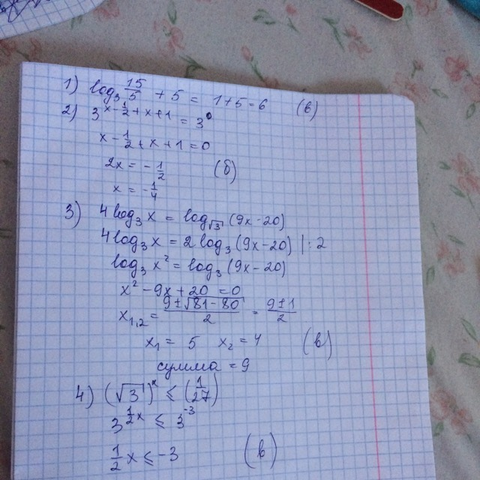 1) log₃ 15/5 + 5 = 1+5=6 (в)
2) 3^(x-1/2+x+1) = 3⁰
x - 1/2 + x + 1 = 0
2x = -1/2 (б)
x = -1/4
3) 4log₃ x = log_√3 (9x-20)
4log₃ x = 2log₃ (9x-20) |:2
log₃ x² = log₃ (9x-20)
x² - 9x + 20 = 0
x₁,₂ = (9±√(81-80))/2 = (9±1)/2
x₁ = 5 x₂ = 4 (в)
сумма = 9
4) (√3)^x ≤ (1/27)
3^(1/2 x) ≤ 3^-3
1/2 x ≤ -3 (в)